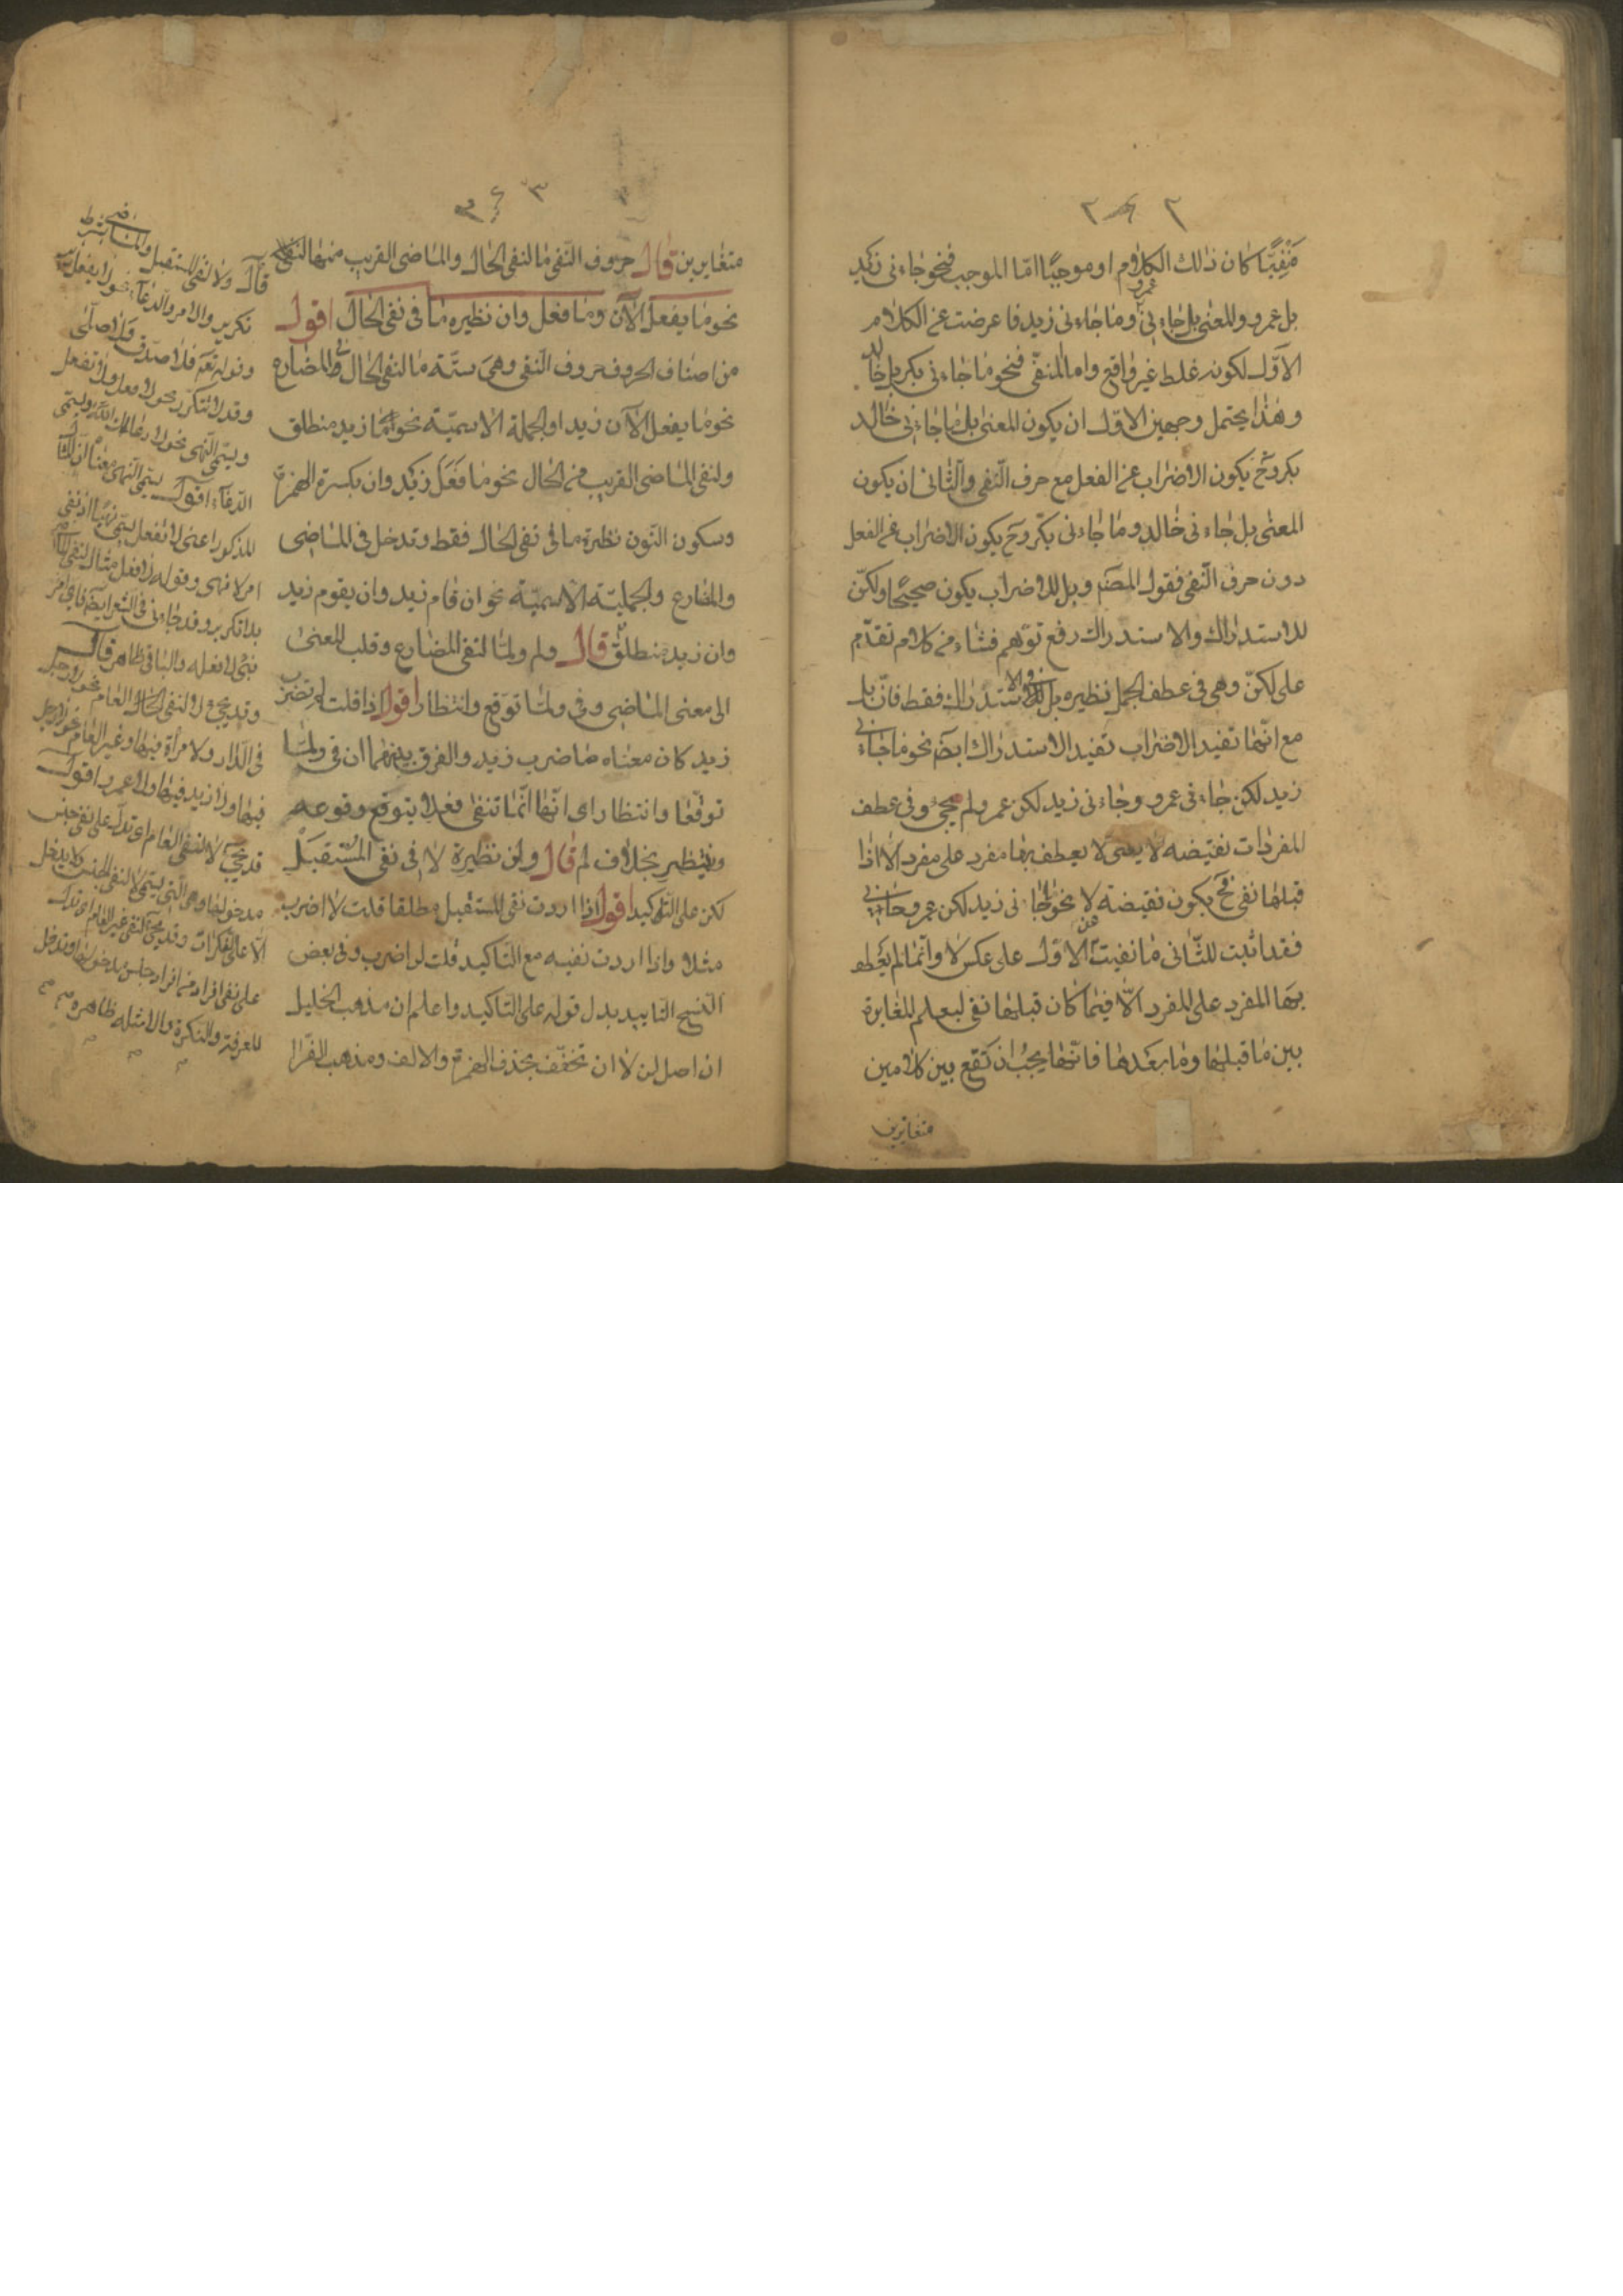 مَنْفِيًّا كان ذلك الكلام او موجبًا امّا الموجب فنحو جاءنى زيد
بل عمرو والمعنى بل جاءنى عمرو وما جاءنى زيد فاعرضت عن الكلام
الاوّل لكونه غلط غير واقع واما المنفىّ فنحو ما جاءنى بكر بل خالد
وهذا يحتمل وجهين الاوّل ان يكون المعنى بل ما جاءنى خالد
بكر وح يكون الاضراب عن الفعل مع حرف النّفى والثّانى ان يكون
المعنى بل جاءنى خالد وما جاءنى بكر وح يكون الاضراب عن الفعل
دون حرف النّفى فقول المصنّ وبل للاضراب يكون صحيحًا ولكنّ
للاستدراك والاستدراك رفع توّهم فشاء من كلام تقدّم
على لكنّ وهى فى عطف الجمل نظيره بل فى الاستدراك فقط فانّ بل
مع انّها تفيد الاضراب تفيد الاستدراك ايضًا نحو ما جاءنى
زيد لكن جاءنى عمرو وجاءنى زيد لكن عمرو لم يجئ وفى عطف
المفردات نقيضه لا يعنى لا يعطف بها مفرد على مفرد الا اذا
قبلها نفى فح يكون نقيضة لا نحو ما جاءنى زيد لكن عمرو جاءنى
فقد اثبت للثّانى ما نفيت عن الاوّل على عكس لا وانّما لم يعطف
بها المفرد على المفرد الّا فيما كان قبلها نفى ليعلم المغايرة
بين ما قبلها وما بعدها فانّها يجب ان تقع بين كلامين
متغايرين
متغايرين قال حروف النّفى ما لنفى الحال والماضى القريب منها
نحو ما يفعل الآن وما فعل وان نظيره ما فى نفى الحال اقول
من اصناف الحروف حروف النّفى وهى ستّة ما لنفى الحال فى المضارع
نحو ما يفعل الآن زيد او الجملة الاسميّة نحو ما زيد منطلق
ولنفى الماضى القريب من الحال نحو ما فَعَلَ زيد وان بكسرة الهمزة
وسكون النّون نظيرة ما فى نفى الحال فقط وتدخل فى الماضى
والمضارع والجمليّة الاسميّة نحو ان قام زيد وان يقوم زيد
وان زيد منطلق قال ولم ولمّا لنفى المضارع وقلب المعنى
الى معنى الماضى وفى ولمّا توقع وانتظار اقول اذا قلت لم تضرب
زيد كان معناه ما ضرب زيد والفرق بينهما ان فى ولمّا
توقّعًا وانتظارا اى انّها انّما تنفى فعلا يتوقع وقوعه
وينتظر بخلاف لم قال ولن نظيرة لا فى نفى المستقبل
لكن على التّاكيد اقول اذا اردت نفى المستقبل مطلقا قلت لا اضرب
مثلا واذا اردت نفيه مع التّاكيد قلت لن اضرب وفى بعض
النسخ التابيد بدل قوله على التّاكيد واعلم ان مذهب الخليل
ان اصل لن لا ان تخفّف بحذف الهمزة والالف ومذهب الفرّا
قال ولا لنفى المستقبل والماضى بشرط
تكرير والامر والدّعاء نحو لا يفعل
وقوله تعم فلا صدّق ولا صلّى
وقد لا تتكرّر نحو لا فعل ولا تفعل
ويسمّى النّهى نحو لا رعاك الله ويسمّى
الدّعاء اقول يسمّى النّهى
المذكور اعنى لا تفعل يسمّى نهيًا
امر لا نهى وقوله لا فعل مثال لنفى الماضى
بلا تكرير وقد جاء فى الشعر ايضًا
والباقى ظاهر قال
وقد يجئ لا لنفى الحال العام نحو لا رجل
فى الدّار ولا مرأة فيها وغير العام نحو لا رجل
فيها ولا زيد فيها ولا عمرو اقول
قد يجئ لا لنفى العام اى تدل على نفى جنس
مدخولها وهى الّتى يسمّى لا لنفى الجنس ولا يدخل
الّا على النّكرات وقد يجئ لنفى غير العام اى تدل
على نفى افراد من افراد جنس مدخولها وتدخل
المعرفة والنكرة والامثله ظاهرة